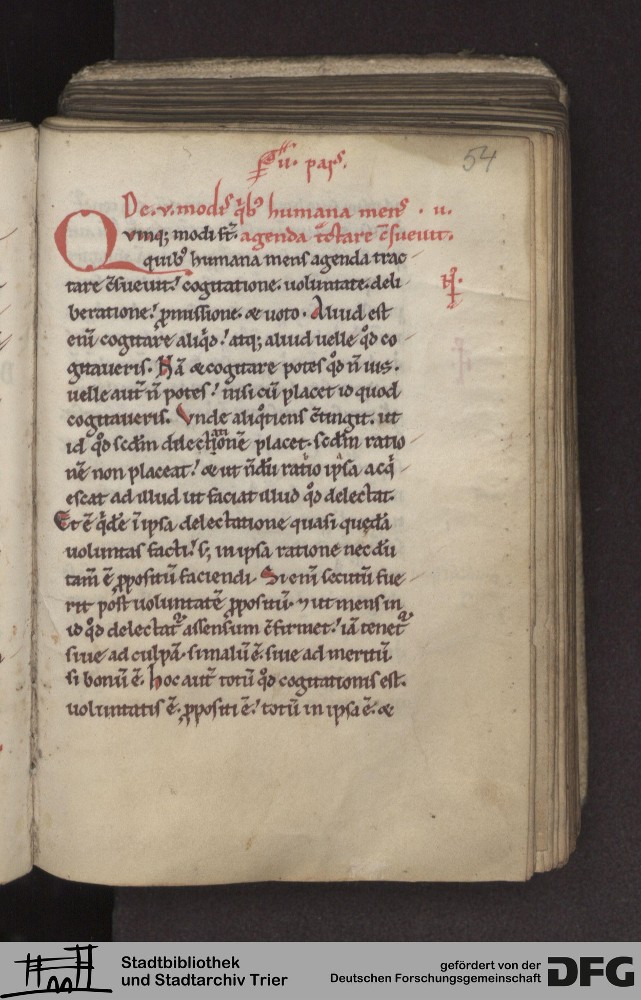 ii. pars.
54
De. v. modis q̇bꝰ humana mens . ii.
Qvinq; modi sт̄. agenda t̄ctare c̄sueuit.
quibꝰ humana mens agenda trac
tare c̄sueuit. cogitatione. uoluntate. deli
beratione. ꝓmissione. & uoto. Aliud est
eni̅ cogitare aliq̇d. atq; aliud uelle qd̄ co
gitaueris. Nā & cogitare potes qd̄ n̄ uis.
uelle aut̄ n̄ potes. nisi cu̅ placet id quod
cogitaueris. Vnde aliq̇tiens c̄tingit. ut
id qd̄ scd̄m dilectionē placet. scd̄m ratio
nē non placeat. & ut nd̄u̅ ratio ipsa acq̇
escat ad illud ut faciat illud qd̄ delectat.
Et ē q̇dē i̅ ipsa delectatione quasi quedā
uoluntas facti. s; in ipsa ratione nec du̅
tam̄ ē ꝓpositu̅ faciendi. Si eni̅ secutu̅ fue
rit post uoluntatē ꝓpositu̅. ut mens in
id qd̄ delectat᷑ assensum c̄firmet. iā tenet᷑
siue ad culpā. si malu̅ ē. siue ad meritu̅
si bonu̅ ē. hoc aut̄ totu̅ qd̄ cogitationis est.
uoluntatis ē. ꝓpositi ē. totu̅ in ipsa ē. &
Stadtbibliothek
und Stadtarchiv Trier
gefördert von der
Deutschen Forschungsgemeinschaft
DFG